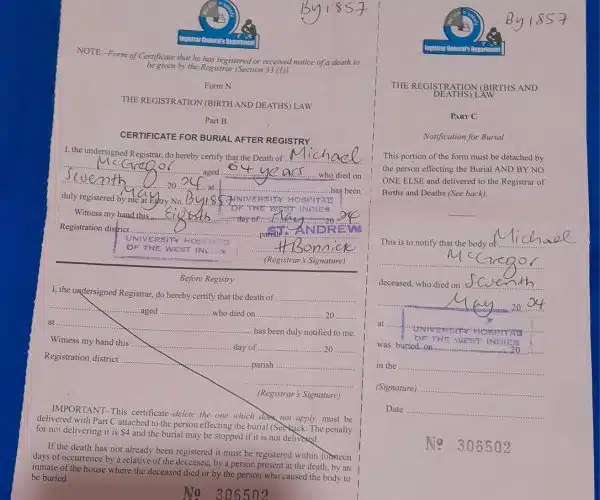 By1857
Registrar General's Department
NOTE.—Form of Certificate that he has registered or received notice of a death to
be given by the Registrar (Section 33 (1))
Form N
THE REGISTRATION (BIRTH AND DEATHS) LAW
Part B
CERTIFICATE FOR BURIAL AFTER REGISTRY
I, the undersigned Registrar, do hereby certify that the Death of Michael
McGregor aged 64 years who died on
Seventh May 20 24 at UNIVERSITY HOSPITAL OF THE WEST INDIES has been
duly registered by me at Entry No. By1857
Witness my hand this Eighth day of May 20 24
Registration district UNIVERSITY HOSPITAL OF THE WEST INDIES parish ST. ANDREW
HBonnick
(Registrar's Signature)
Before Registry
I, the undersigned Registrar, do hereby certify that the death of
aged who died on 20
at has been duly notified to me.
Witness my hand this day of 20
Registration district parish
(Registrar's Signature)
IMPORTANT–This certificate -delete the one which does not apply must be
delivered with Part C attached to the person effecting the burial (See back: The penalty
for not delivering it is $4 and the burial may be stopped if it is not delivered.
If the death has not already been registered it must be registered within fourteen
days of occurrence by a relative of the deceased, by a person present at the death, by an
inmate of the house where the deceased died or by the person who caused the body to
be buried.
Nº 306502
By1857
Registrar General's Department
THE REGISTRATION (BIRTHS AND
DEATHS) LAW
PART C
Notification for Burial
This portion of the form must be detached by
the person effecting the Burial AND BY NO
ONE ELSE and delivered to the Registrar of
Births and Deaths (See back).
This is to notify that the body of Michael
McGregor
deceased, who died on Seventh
May 20 24
at UNIVERSITY HOSPITAL
OF THE WEST INDIES
was buried on 20
in the
(Signature)
Date
Nº 306502